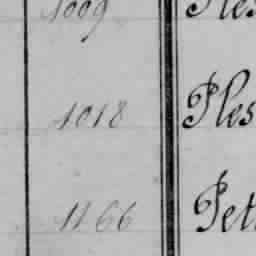 1009 Ples
1018 Ples
1166 Pet